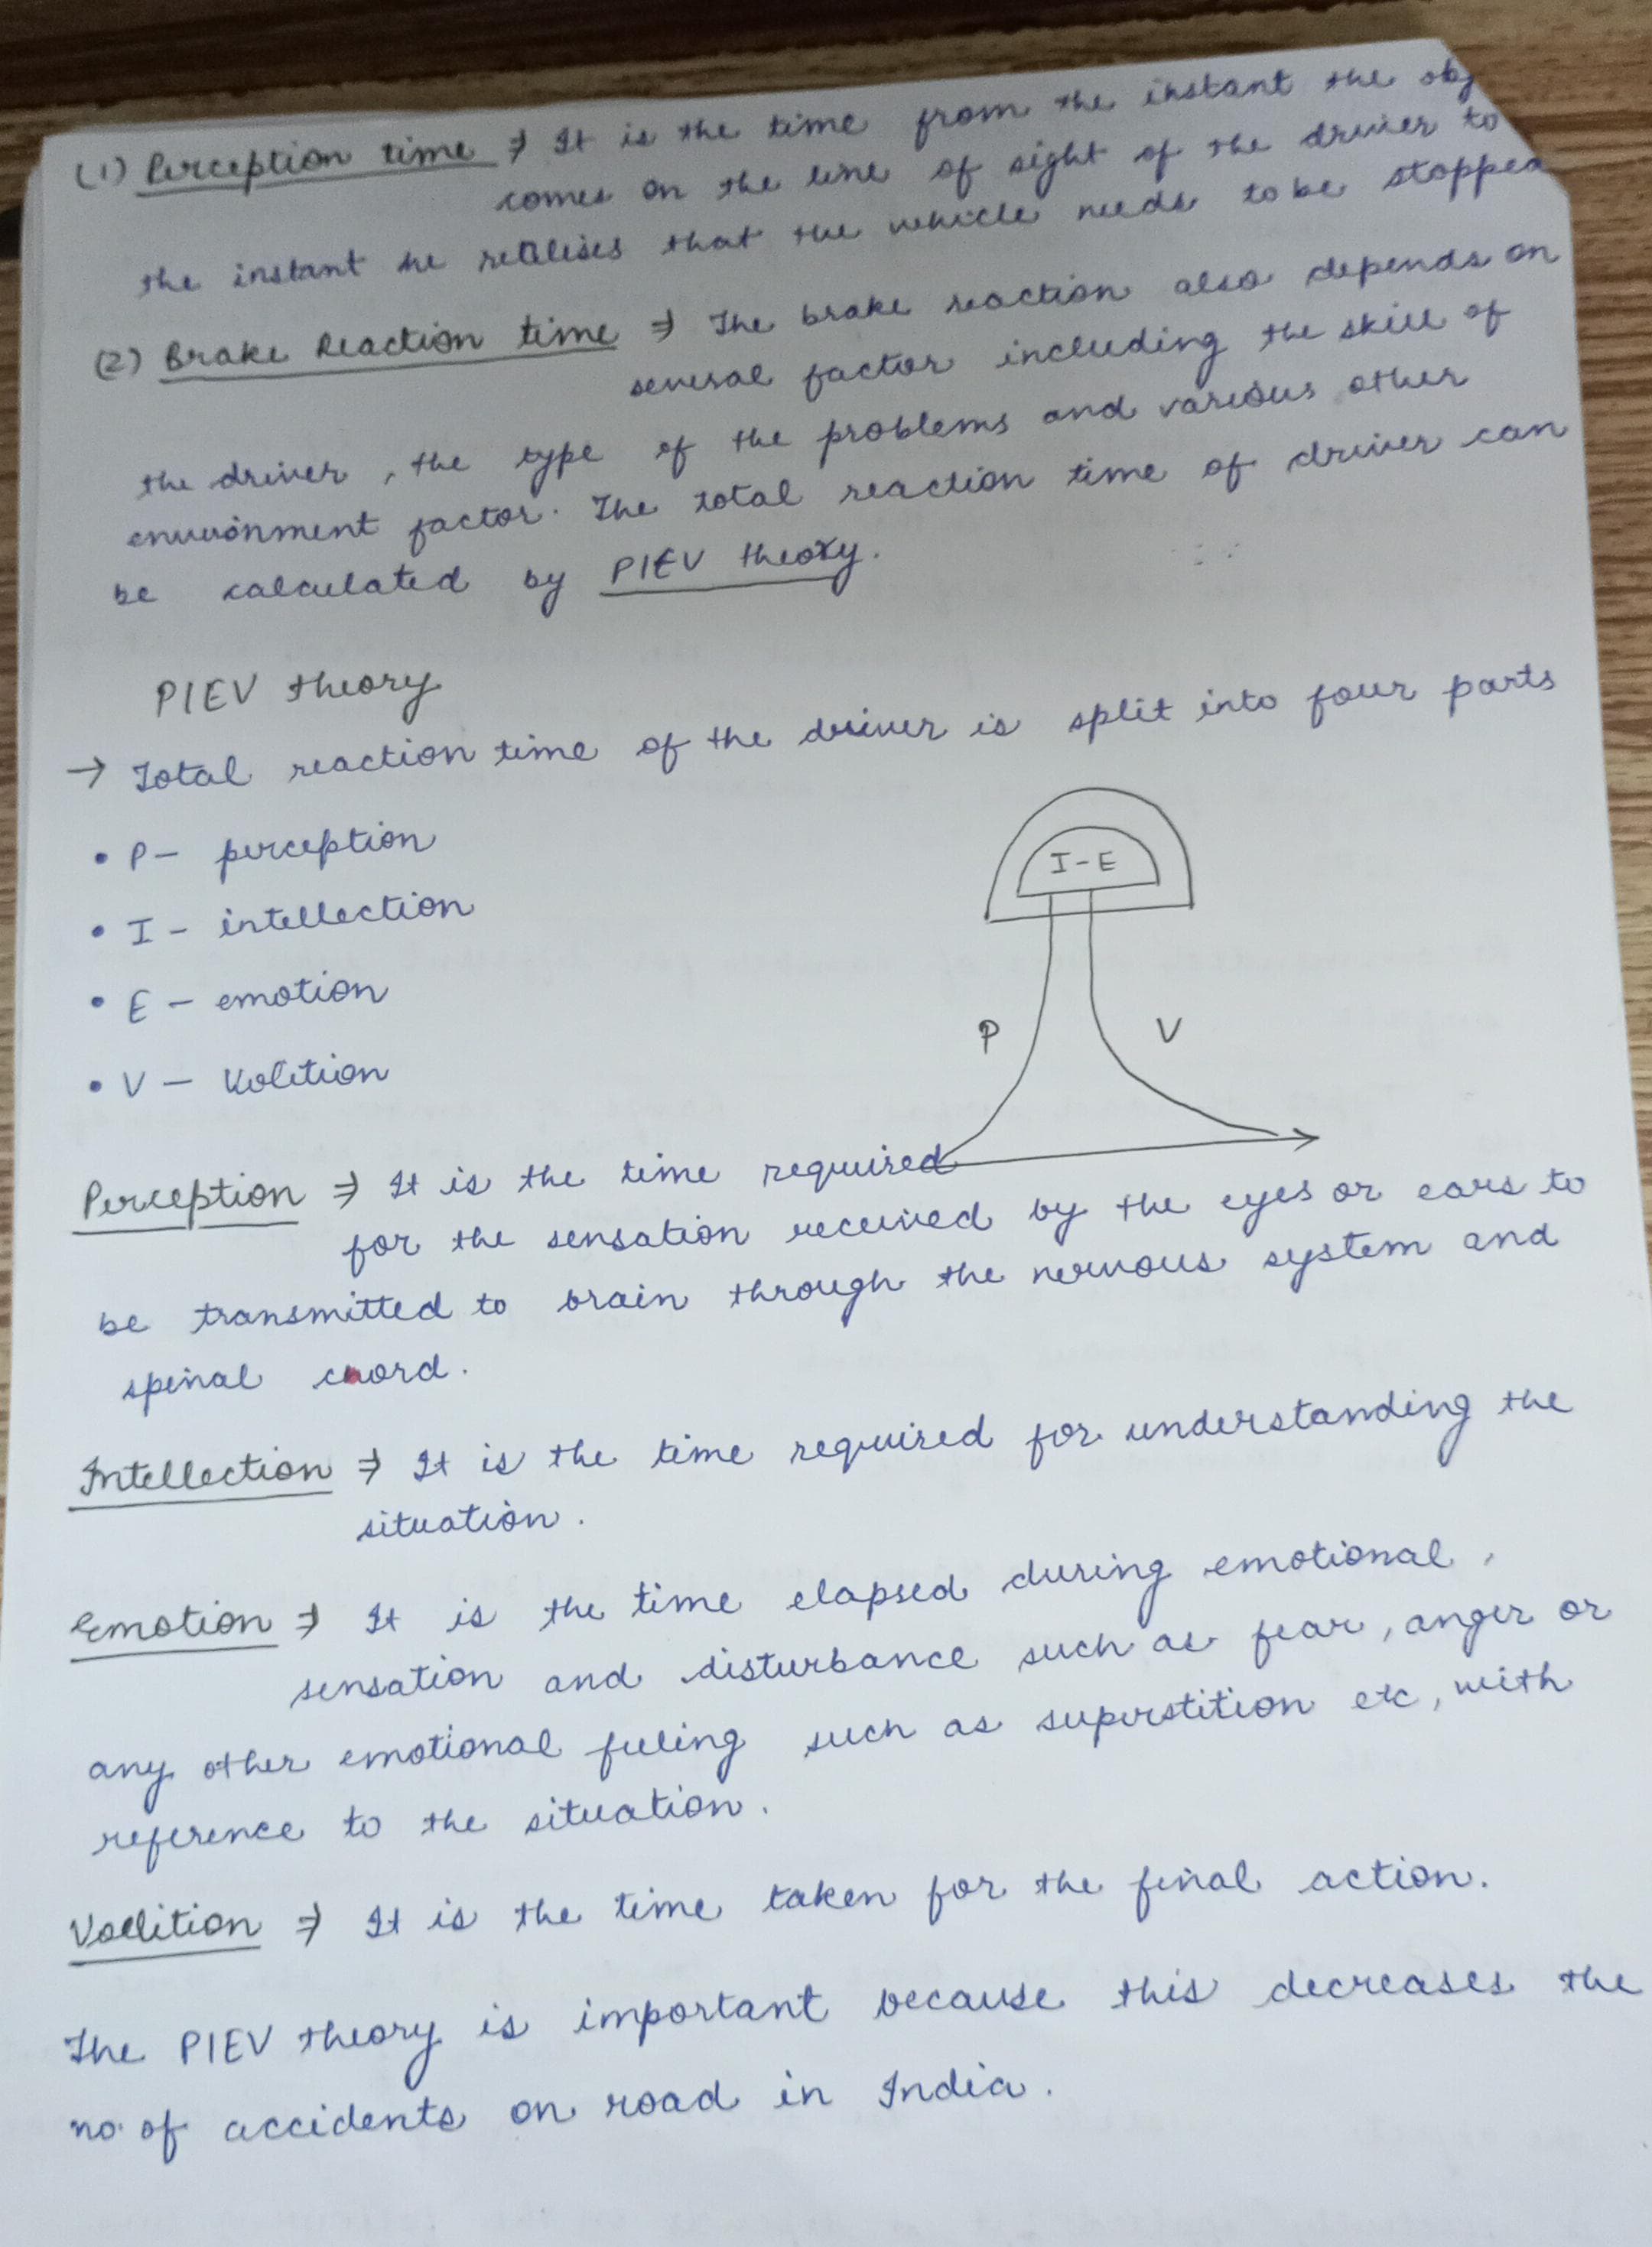 (1) Perception time ⇒ It is the time from the instant the obj
comes on the line of sight of the driver to
the instant he realises that the vehicle needs to be stopped
(2) Brake Reaction time ⇒ The brake reaction also depends on
several factor including the skill of
the driver, the type of the problems and various other
environment factor. The total reaction time of driver can
be calculated by PIEV theory.
PIEV theory
→ Total reaction time of the driver is split into four parts
• P - perception
• I - intellection
• E - emotion
• V - Volition
I-E
P
V
Perception ⇒ It is the time required
for the sensation received by the eyes or ears to
be transmitted to brain through the nervous system and
spinal chord.
Intellection ⇒ It is the time required for understanding the
situation.
Emotion ⇒ It is the time elapsed during emotional,
sensation and disturbance such as fear, anger or
any other emotional feeling such as superstition etc, with
reference to the situation.
Vollition ⇒ It is the time taken for the final action.
The PIEV theory is important because this decreases the
no. of accidents on road in India.